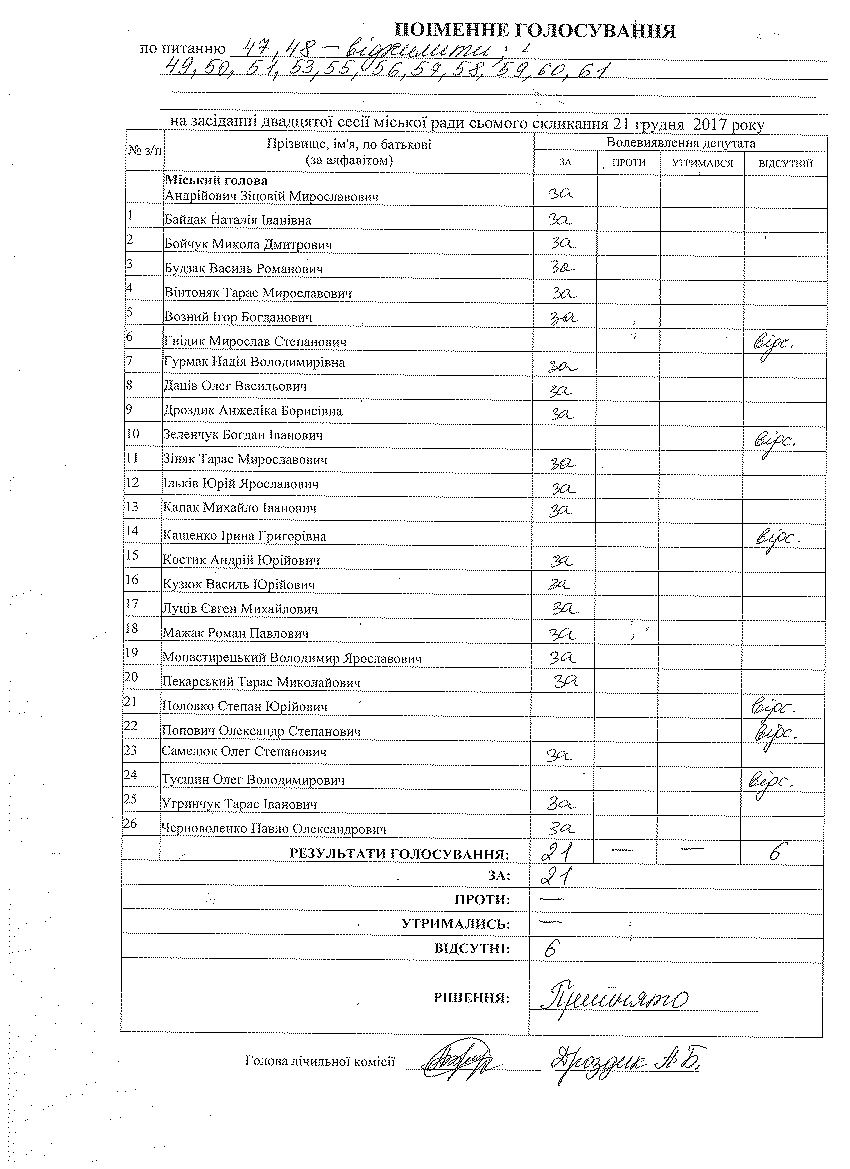 ПОІМЕННЕ ГОЛОСУВАННЯ
по питанню 47, 48 – відхилити;
49, 50, 51, 53, 55, 56, 59, 58, 59, 60, 61
на засіданні двадцятої сесії міської ради сьомого скликання 21 грудня 2017 року
№ з/п Прізвище, ім'я, по батькові (за алфавітом) Волевиявлення депутата
ЗА ПРОТИ УТРИМАВСЯ ВІДСУТНІЙ
Міський голова
Андрійович Зіновій Мирославович за
1 Байдак Наталія Іванівна за
2 Бойчук Микола Дмитрович за
3 Будзак Василь Романович за
4 Вінтоняк Тарас Мирославович за
5 Возний Ігор Богданович за
6 Гнідик Мирослав Степанович відс.
7 Гурмак Надія Володимирівна за
8 Даців Олег Васильович за
9 Дроздик Анжеліка Борисівна за
10 Зеленчук Богдан Іванович відс.
11 Зіняк Тарас Мирославович за
12 Ільків Юрій Ярославович за
13 Капак Михайло Іванович за
14 Кащенко Ірина Григорівна відс.
15 Костик Андрій Юрійович за
16 Кузюк Василь Юрійович за
17 Луців Євген Михайлович за
18 Мажак Роман Павлович за
19 Монастирецький Володимир Ярославович за
20 Пекарський Тарас Миколайович за
21 Половко Степан Юрійович відс.
22 Попович Олександр Степанович відс.
23 Самелюк Олег Степанович за
24 Олег Володимирович відс.
25 Угринчук Тарас Іванович за
26 Черноволенко Павло Олександрович за
РЕЗУЛЬТАТИ ГОЛОСУВАННЯ: 21 — — 6
ЗА: 21
ПРОТИ: —
УТРИМАЛИСЬ: —
ВІДСУТНІ: 6
РІШЕННЯ: Прийнято
Голова лічильної комісії Дроздик А.Б.